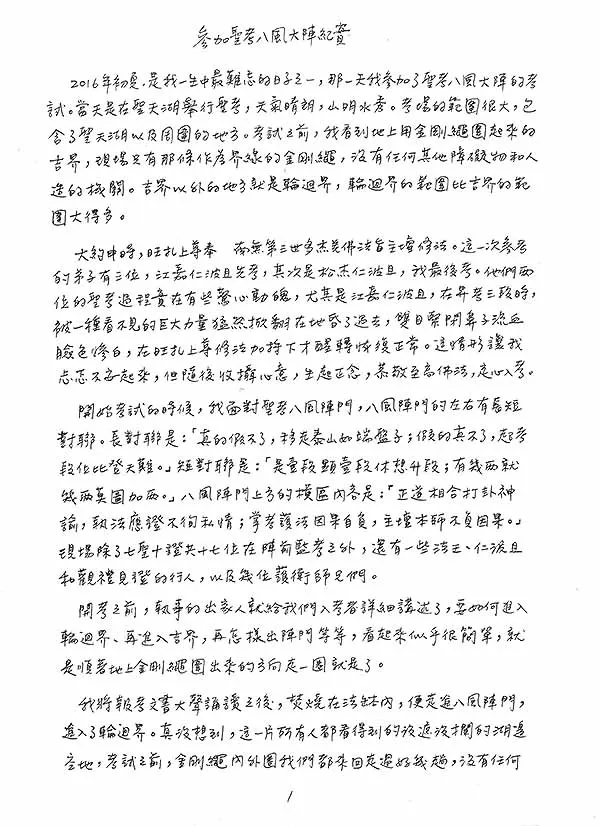 參加聖考八風大陣紀實
2016年初夏,是我一生中最難忘的日子之一,那一天我參加了聖考八風大陣的考
試。當天是在聖天湖舉行聖考,天氣晴朗,山明水秀。考場的範圍很大,包
含了聖天湖以及周圍的地方。考試之前,我看到地上用金剛繩圍起來的
吉界,現場只有那條作為界線的金剛繩,沒有任何其他障礙物和人
造的機關。吉界以外的地方就是輪迴界,輪迴界的範圍比吉界的範
圍大得多。
大約申時,旺扎上尊奉 南無第三世多杰羌佛法旨主壇修法。這一次參考
的弟子有三位,江嘉仁波且先考,其次是松杰仁波且,我最後考。他們兩
位的聖考過程實在有些驚心動魄,尤其是江嘉仁波且,在昇考三段時,
被一種看不見的巨大力量猛然掀翻在地昏了過去,雙目緊閉鼻子流血
臉色慘白,在旺扎上尊修法加持下才醒轉恢復正常。這情形讓我
忐忑不安起來,但隨後收攝心意,生起正念,恭敬至高佛法,定心入考。
開始考試的時候,我面對聖考八風陣門,八風陣門的左右有長短
對聯。長對聯是:「真的假不了,移走泰山如端盤子;假的真不了,起考
段位比登天難。」短對聯是:「是壹段顯壹段休想升段;有幾两就
幾两莫圖加两。」八風陣門上方的橫匾內容是:「正道相合打卦神
諭,執法應證不徇私情;掌考護法因果自負,主壇本師不負因果。」
現場除了七聖十證共十七位在陣前監考之外,還有一些法王、仁波且
和觀禮見證的行人,以及幾位護衛師兄們。
開考之前,執事的出家人就給我們入考者詳細講述了,要如何進入
輪迴界、再進入吉界,再怎樣出陣門等等,看起來似乎很簡單,就
是順著地上金剛繩圍出來的方向走一圈就是了。
我將報考文書大聲誦讀之後,焚燒在法缽內,便走進八風陣門,
進入了輪迴界。真沒想到,這一片所有人都看得到的沒遮沒攔的湖邊
空地,考試之前,金剛繩內外圍我們都來回走過好幾趟,沒有任何
1